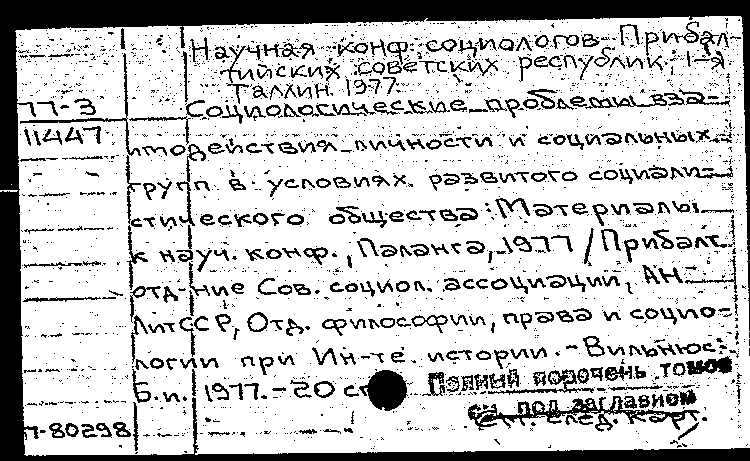 Научная конф. социологов Прибал-
тийских советских республик, 1-я
Таллин. 1977
77-3 Социологические проблемы вза-
11447
имодействия личности и социальных
групп в условиях развитого социали-
стического общества: Материалы
к науч. конф., Паланга, 1977 / Прибалт.
отд-ние Сов. социол. ассоциации, АН
ЛитССР, Отд. философии, права и социо-
логии при Ин-те истории. - Вильнюс:
Б.и. 1977. - 20 см
Полный перечень томов
см. под заглавием
См. след. карт.
П-80298